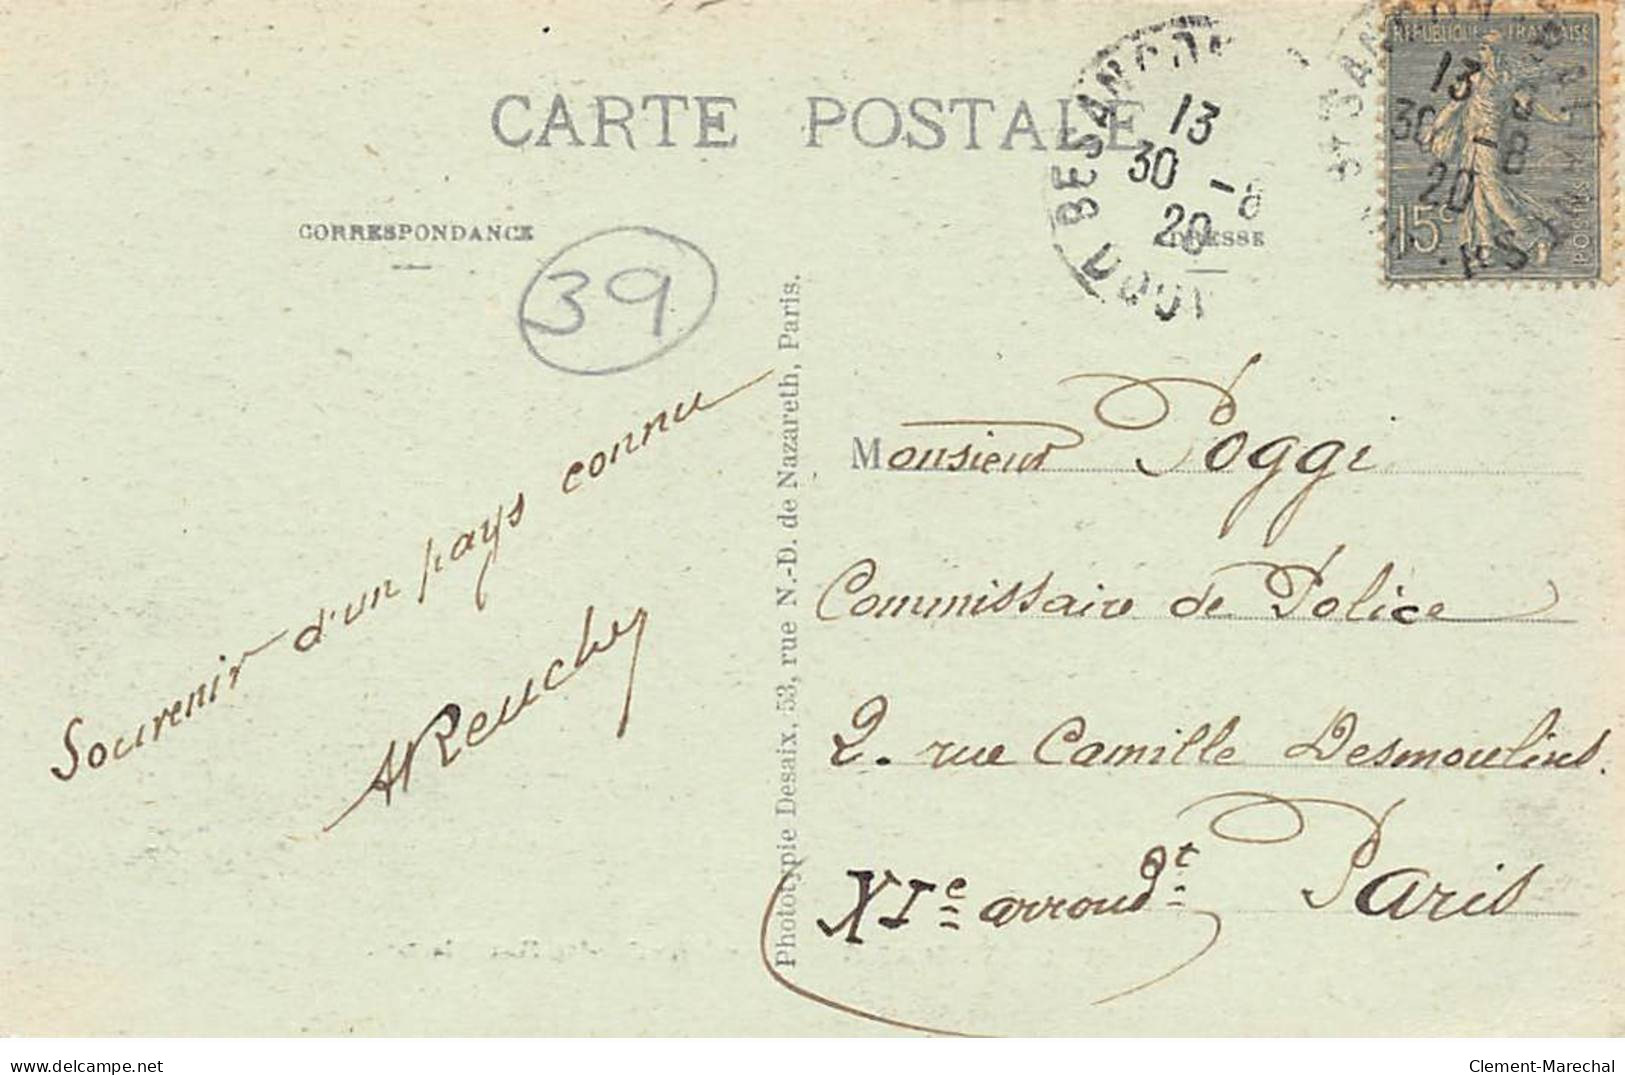 CARTE POSTALE
CORRESPONDANCE
ADRESSE
39
BESANCON
DOU
13
30 -8
20
13
30 -8
20
REPUBLIQUE FRANÇAISE
15c
POSTES
Souvenir d'un pays connu
Phototypie Desaix, 53, rue N.-D. de Nazareth, Paris.
Monsieur Poggi
Commissaire de Police
2. rue Camille Desmoulins.
XIe arrondt Paris
www.delcampe.net
Clement-Marechal